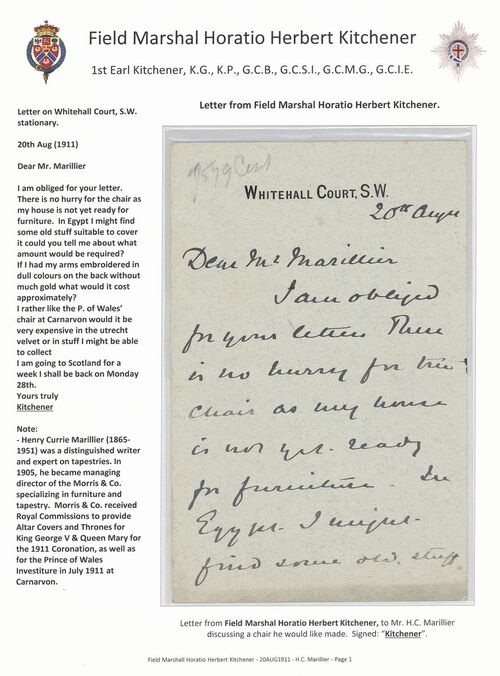 Field Marshal Horatio Herbert Kitchener
1st Earl Kitchener, K.G., K.P., G.C.B., G.C.S.I., G.C.M.G., G.C.I.E.
Letter on Whitehall Court, S.W.
stationary.
20th Aug (1911)
Dear Mr. Marillier
I am obliged for your letter.
There is no hurry for the chair as
my house is not yet ready for
furniture. In Egypt I might find
some old stuff suitable to cover
it could you tell me about what
amount would be required?
If I had my arms embroidered in
dull colours on the back without
much gold what would it cost
approximately?
I rather like the P. of Wales'
chair at Carnarvon would it be
very expensive in the utrecht
velvet or in stuff I might be able
to collect
I am going to Scotland for a
week I shall be back on Monday
28th.
Yours truly
Kitchener
Note:
- Henry Currie Marillier (1865-
1951) was a distinguished writer
and expert on tapestries. In
1905, he became managing
director of the Morris & Co.
specializing in furniture and
tapestry. Morris & Co. received
Royal Commissions to provide
Altar Covers and Thrones for
King George V & Queen Mary for
the 1911 Coronation, as well as
for the Prince of Wales
Investiture in July 1911 at
Carnarvon.
Letter from Field Marshal Horatio Herbert Kitchener.
WHITEHALL COURT, S.W.
20th Augu
Dear Mr Marillier
I am obliged
for your letter There
is no hurry for the
chair as my house
is not yet ready
for furniture. In
Egypt I might
find some old stuff
Letter from Field Marshal Horatio Herbert Kitchener, to Mr. H.C. Marillier
discussing a chair he would like made. Signed: "Kitchener".
Field Marshal Horatio Herbert Kitchener - 20AUG1911 - H.C. Marillier - Page 1